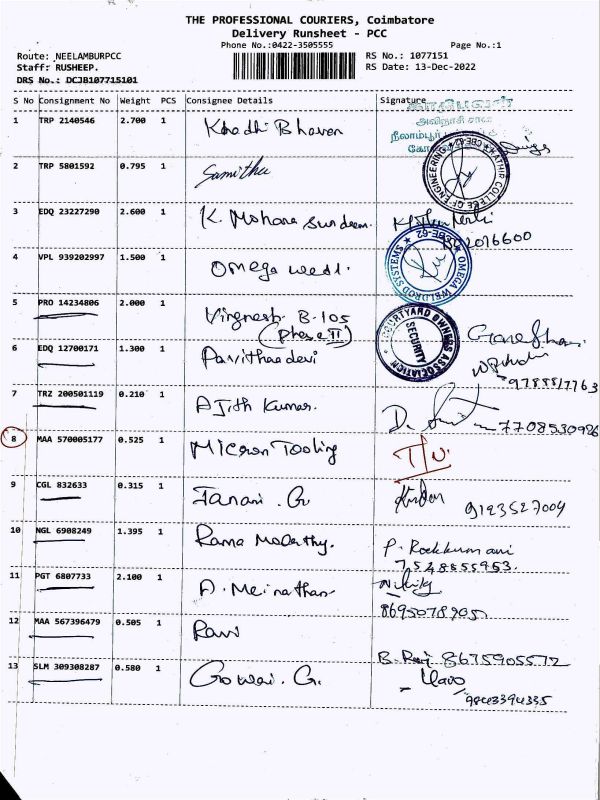 THE PROFESSIONAL COURIERS, Coimbatore
Delivery Runsheet - PCC
Phone No.:0422-3505555
Page No.:1
Route: NEELAMBURPCC
Staff: RUSHEEP.
DRS No.: DCJB107715101
RS No.: 1077151
RS Date: 13-Dec-2022
S No Consignment No Weight PCS Consignee Details Signature
காதிபவன்
அவிநாசி சாலை
நீலாம்பூர்
1 TRP 2140546 2.700 1 Khadhi Bhavan
KATHIR COLLEGE OF ENGINEERING CBE-62
2 TRP 5801592 0.795 1 Samitha
3 EDQ 23227290 2.600 1 K. Mohana Sundaram
OMEGA WELDROD SYSTEMS CBE-62
4 VPL 939202997 1.500 1 Omega weld.
5 PRO 14234806 2.000 1 Vignesh B-105
(Phase II)
COURTYARD OWNERS ASSOCIATION
SECURITY
6 EDQ 12700171 1.300 1 Pavithradevi
7 TRZ 200501119 0.210 1 Ajith Kumar.
7708530926
8 MAA 570005177 0.525 1 Micron Tooling
9 CGL 832633 0.315 1 Janani . G
9123527009
10 NGL 6908249 1.395 1 Rama Moorthy.
P. Rockkumani
7548855953.
11 PGT 6807733 2.100 1 A. Meinathan
12 MAA 567396479 0.505 1 Ravi
B. Raj 8675905572
13 SLM 309308287 0.580 1 Gowri. G.
9843394335